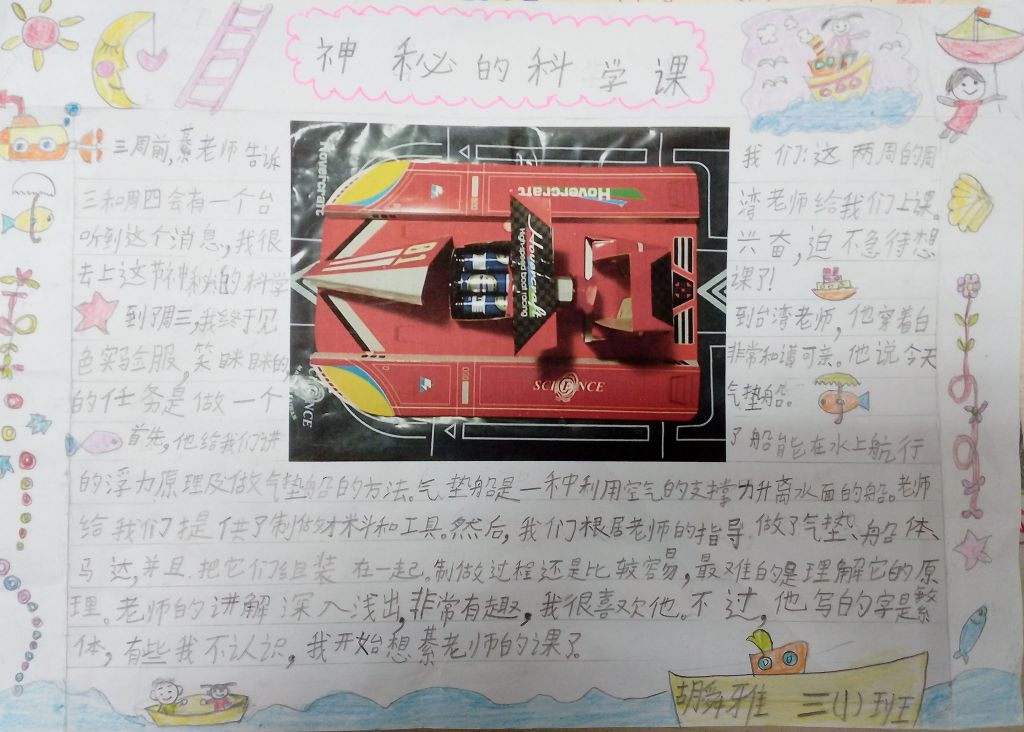 神秘的科学课
三周前,綦老师告诉我们:这两周的周
三和周四会有一个台湾老师给我们上课。
听到这个消息,我很兴奋,迫不急待想
去上这节神秘的科学课了!
到了周三,我终于见到台湾老师,他穿着白
色实验服,笑眯眯的非常和谐可亲。他说今天
的任务是做一个气垫船。
首先,他给我们讲了船能在水上航行
的浮力原理及做气垫船的方法。气垫船是一种利用空气的支撑力升离水面的船。老师
给我们提供了制做材料和工具。然后,我们根居老师的指导做了气垫、船体、
马达,并且把它们组装在一起。制做过程还是比较容易,最难的是理解它的原
理。老师的讲解深入浅出,非常有趣,我很喜欢他。不过,他写的字是繁
体,有些我不认识,我开始想綦老师的课了。
Hovercraft
Hovercraft
Hovercraft
High-speed boat racing
SCIENCE
SCIENCE
胡舜雅 三(1)班